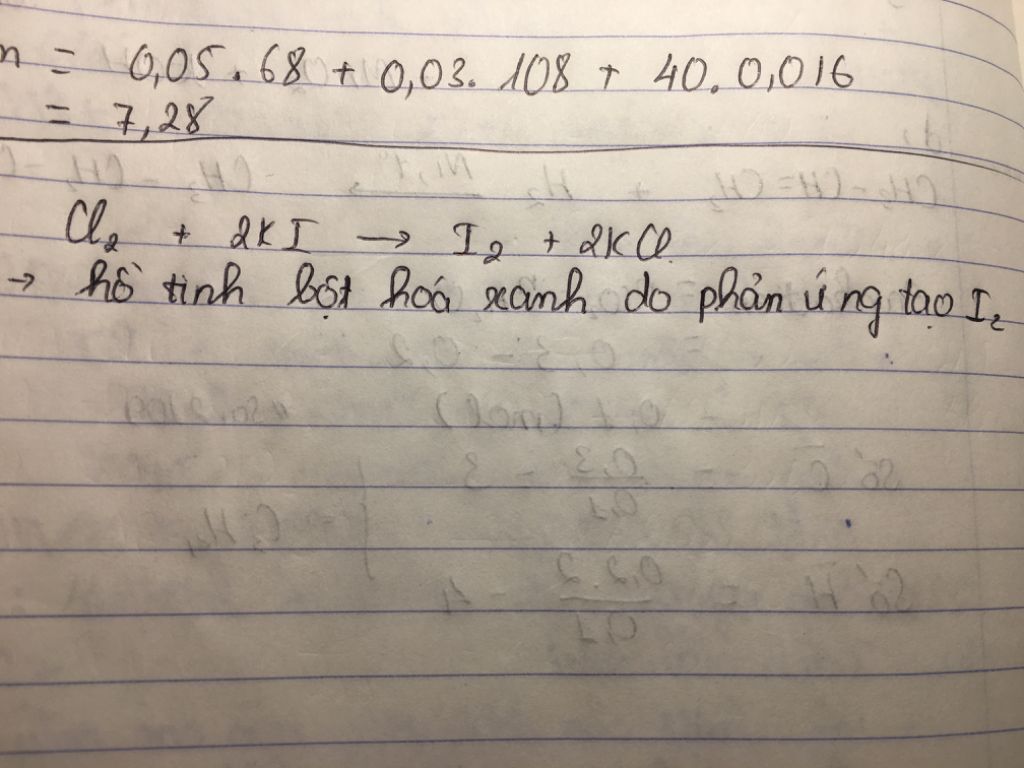 = 0,05 . 68 + 0,03. 108 + 40. 0,016
= 7,28
Cl₂ + 2KI → I₂ + 2KCl
→ hồ tinh bột hoá xanh do phản ứng tạo I₂